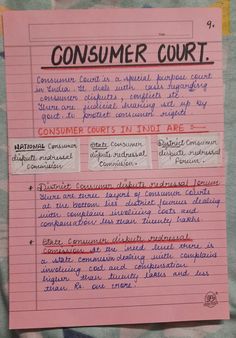 9.
CONSUMER COURT.
Consumer Court is a special purpose court
in India. It deals with cases regarding
consumer disputes, conflicts etc
There are judicial hearing set up by
govt. to protect consumer rights
CONSUMER COURTS IN INDI ARE :-
NATIONAL Consumer
dispute redressal
Commission
State Consumer
dispute redressal
Commission.
District Consumer
dispute redressal
Forum.
District Consumer dispute redressal Forum
There are three layers of Consumer Courts
at the bottom lies district dealing
with complains involving costs and
compensation less than twenty lakhs.
State Consumer dispute redressal
Commission At the level there is
a state commission dealing with complain
involving cost and compensation
higher than twenty lakhs and less
than Rs one crore.